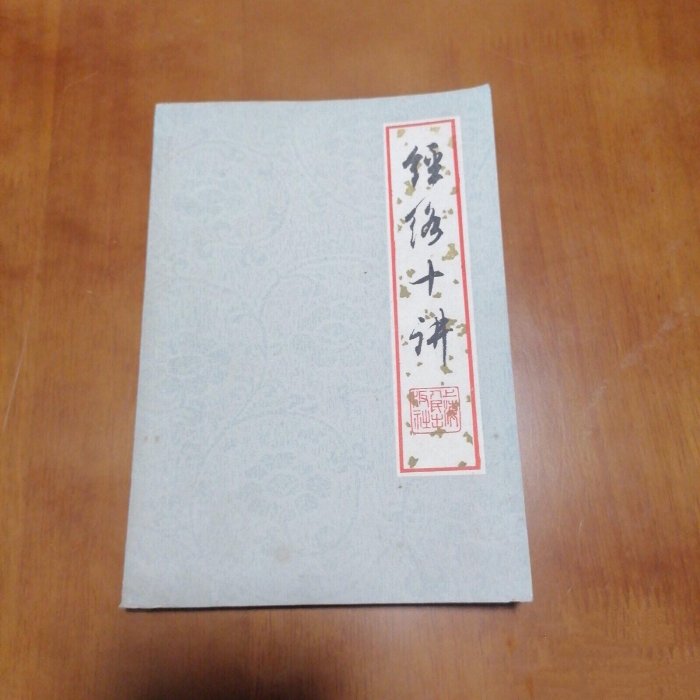 經络十讲
上海
人民出
版社